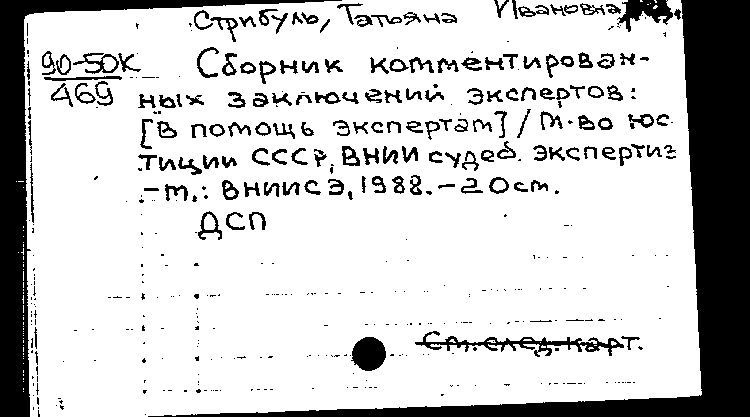 Стрибуль, Татьяна Ивановна
90-50К
469
Сборник комментирован-
ных заключений экспертов:
[В помощь экспертам] / М-во юс
тиции СССР, ВНИИ судеб. экспертиз
.-М.: ВНИИСЭ, 1988.-20см.
ДСП
См. след. карт.